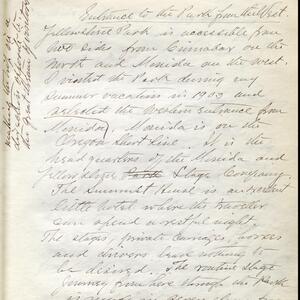 Entrance to the Park from the West.
Yellowstone Park is accessible from
two sides from Cinnabar on the
North and Monida on the West.
I visited the Park during my
summer vacation in 1903 and
selected the Western entrance from
Monida, Monida is on the
Oregon Short Line. It is the
headquarters of the Monida and
Yellowstone Park Stage Company.
The Summit Hotel is an excellent
little hotel where the traveler
can spend a restful night.
The stages, private carriages, horses
and drivers leave nothing to
be desired. The routine stage
journey from here through the Park